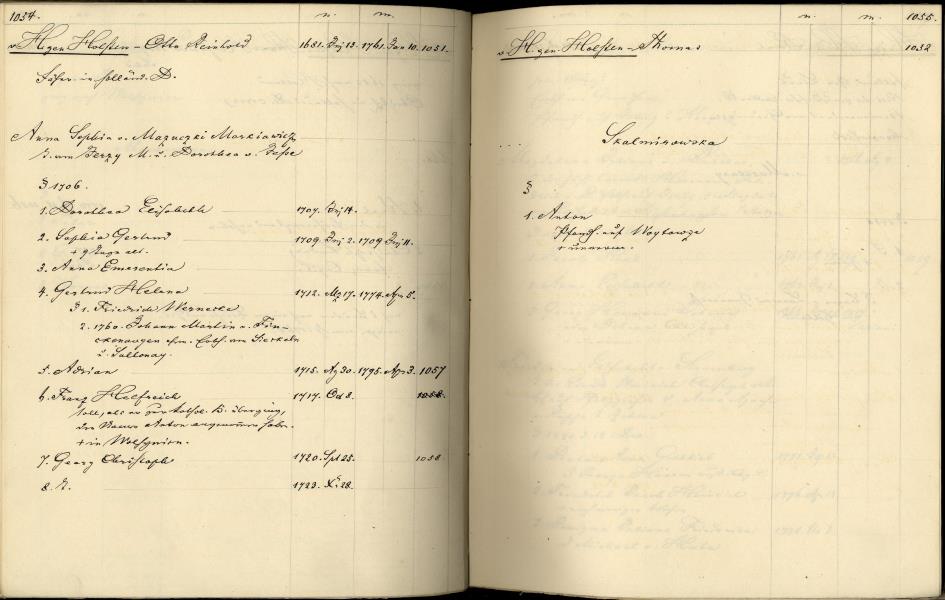 1054. n. m.
v. Hagen Holsten – Otto Reinhold 1681. Dzj 13. 1761. Jan 10. 1051.
in holländ. D.
Anna Sophia v. Mazuczki Markiewicz
T. von Jerzy M. u. Dorothea v.
§ 1706.
1. Dorothea Elisabeth 1707. 14.
2. Sophia Gertrud 1709. 2. 1709 11.
+ 9 Tage alt.
3. Anna Emerentia
4. Gertrud Helena 1712. Mz 17. 1774. Apr 5.
§ 1. Friedrich Wernecke
2. 1760. Johann Martin v. Fin-
ckenaugen
u.
5. Adrian 1715. Ag 30. 1795. Apr 3. 1057
6. Franz Helfreich 1717. Od 8. 1058.
soll, als er zur kathol. K. überging,
den Namen Anton angenommen haben.
+ in Wolhynien.
7. Georg Christoph 1720. Spt 25. 1058
8. T. 1723. X. 28.
n. m. 1055.
v. Hagen Holsten – Thomas 1052
.... Skalmirowska
§
1. Anton
Pfandh. auf Woytowze
+ unverm.